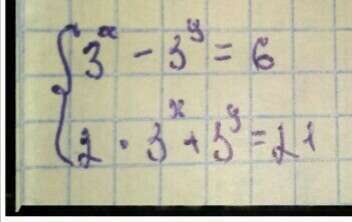 3^x - 3^y = 6
2 · 3^x + 3^y = 21